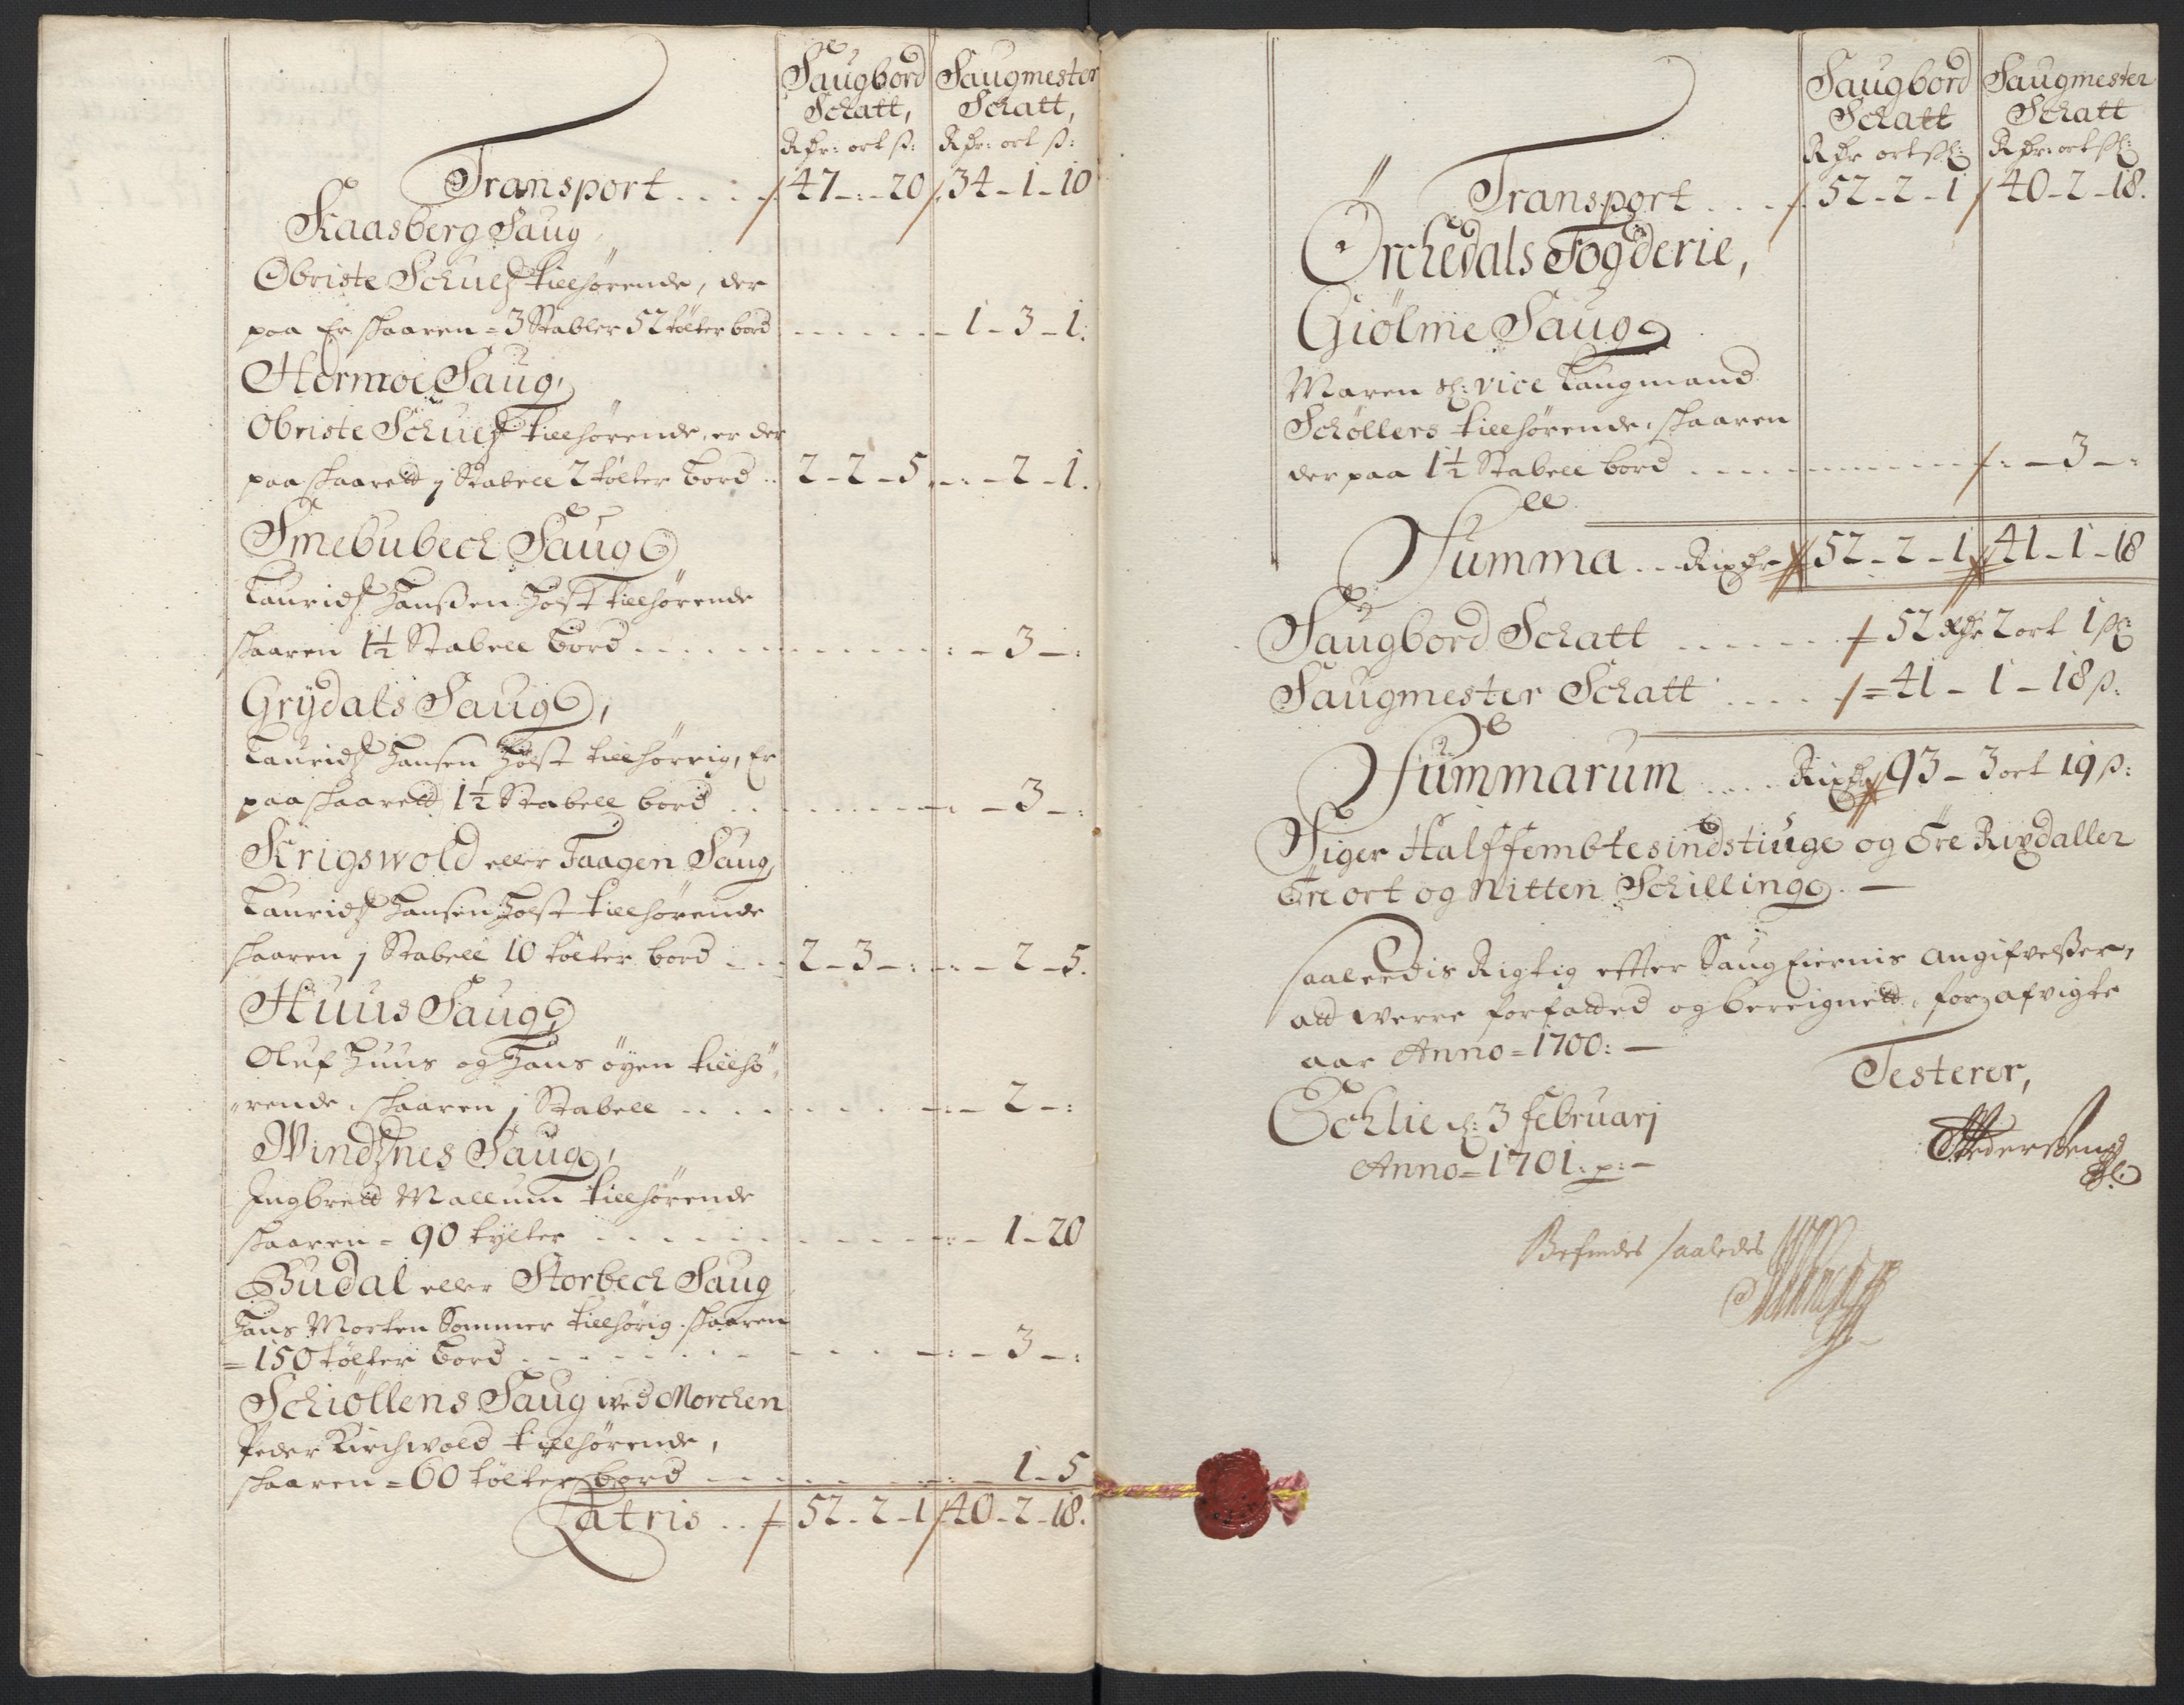 Saugbord Saugmester
Schatt, Schatt,
Rdr: ort s: Rdr: ort s:
Transport . . . . 47 - : - 20 34 - 1 - 10
Kaasberg Saug
Obriste Schultz tillhørende, der
paa er skaaren = 3 Stabler 52 tolter bord - - - - - 1 - 3 - 1:
Hormoe Saug,
Obriste Schultz tillhørende, er der
paa skaarett 1 Stabell 2 tolter bord .. 2 - 2 - 5 - : - 2 - 1.
Smebubech Saug
Lauridz Hanssen Holst tillhørende
skaaren 1½ Stabell bord - - - - - : - 3 - :
Grydals Saug,
Lauridz Hansen Holst tillhørrig, er
paa skaarett 1½ Stabell bord - - - - - : - 3 - :
Krigswold eller Faagen Saug,
Lauridz Hansen Holst tillhørende
skaaren 1 Stabell 10 tolter bord - - 2 - 3 - : - : - 2 - 5.
Huus Saug,
Oluf Huus og Hans Øyen tillhø„
„rende, skaaren 1 Stabell - - - - - : - 2 - :
Windsnes Saug,
Ingbrett Mallum tillhørende
skaaren = 90 tylter - - - - - : - 1 - 20
Budal eller Storbech Saug
Hans Morten Sommer tillhørig. skaaren
= 150 tolter bord - - - - - : - 3 - :
Schiøllens Saug wed Morchen
Peder Kirchwold tillhørende,
skaaren = 60 tolter bord - - - - - : - 1 - 5
Latris . . 52 - 2 - 1 40 - 2 - 18.
Saugbord Saugmester
Schatt Schatt
Rdr ort sk: Rdr: ort sk:
Transport . . . 52 - 2 - 1 40 - 2 - 18.
Orchedals Fogderie,
Giølme Saug
Maren sl: vice Laugmand
Schøllers tillhørende, skaaren
der paa 1½ Stabell bord - - - - - : - 3 - :
Summa . . Rixdr 52 - 2 - 1 41 - 1 - 18
Saugbord Schatt . . . . . 52 Rdr 2 ort 1 sk:
Saugmester Schatt . . . . = 41 - 1 - 18 s:
Summarum . . . . Rixdr 93 - 3 ort 19 s:
Siger Halffembtesindstiuge og Tre Rixdaller
Tre ort og Nitten Schilling. —
saaledis Rigtig effter Saug Eiernis angifvelsser,
att werre forfatted og bereignett, for afvigte
aar Anno = 1700: —
Testerer,
Echlie d: 3 Februarj
Anno = 1701: —
Pederssen
Befindes saaledes